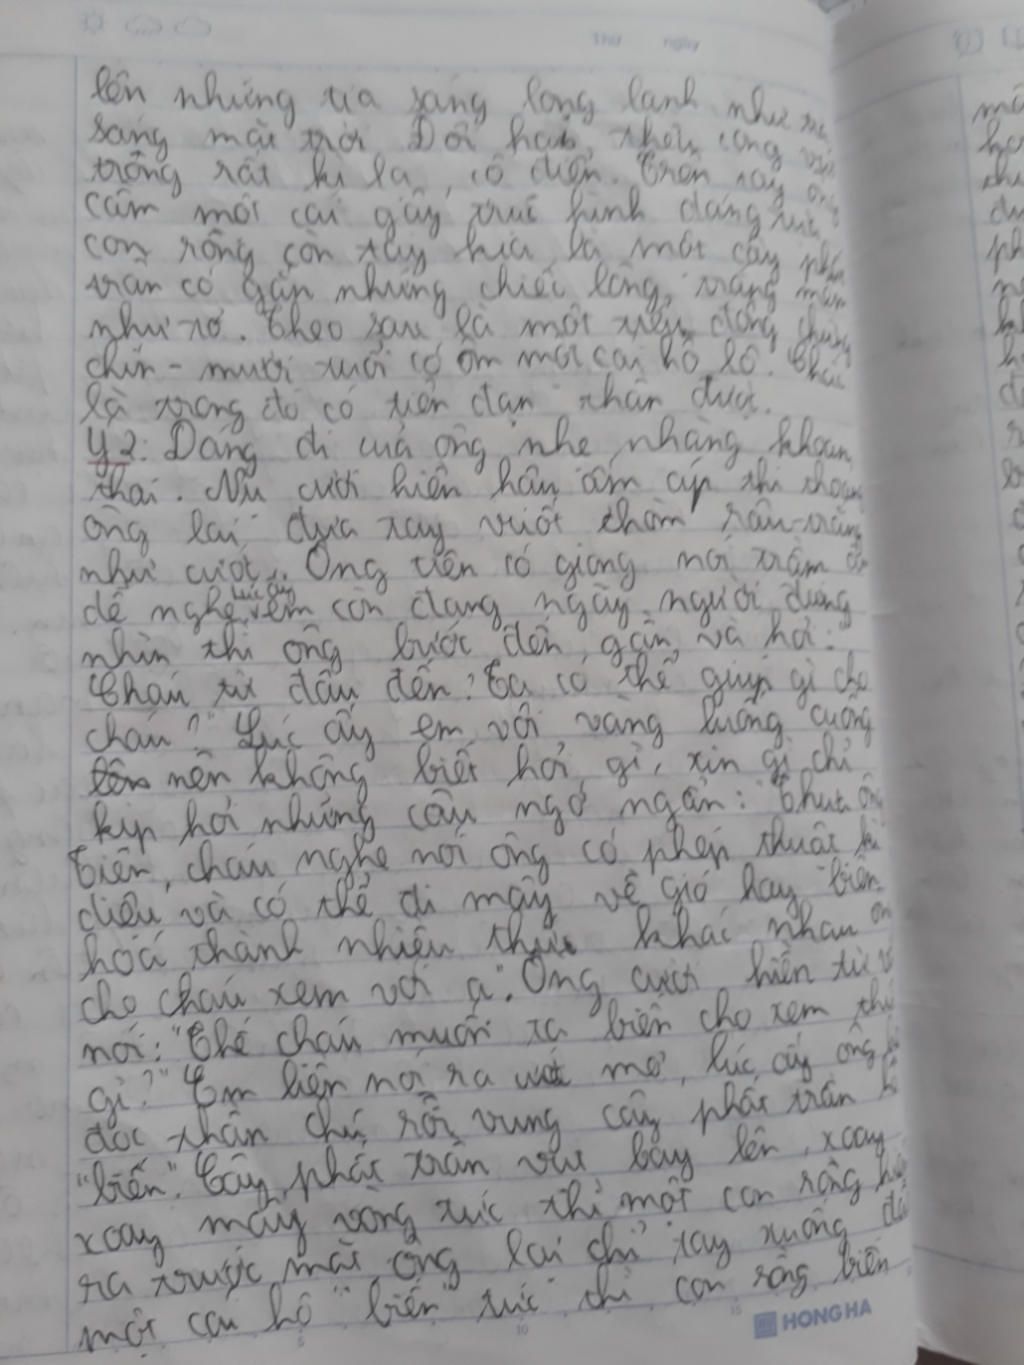 Thứ ngày
lên những tia sáng long lanh như
sáng mặt trời. Đôi hài thêu
trông rất kì lạ, cổ điển. Trên tay ông
cầm một cái gậy trúc hình dáng
con rồng còn tay kia là một cây phất
trần có gắn những chiếc lông trắng
như tơ. Theo sau là một tiểu đồng chừng
chín - mười tuổi có ôm một cái hồ lô. Chắc
là trong đó có tiên đan thần dược.
Ý 2: Dáng đi của ông nhẹ nhàng khoan
thai. Nụ cười hiền hậu, ấm áp thi thoảng
ông lại đưa tay vuốt chòm râu trắng
như cước. Ông tiên có giọng nói trầm
dễ nghe, lúc ấy em còn đang ngây người đứng
nhìn thì ông bước đến gần và hỏi: "
Cháu từ đâu đến? Ta có thể giúp gì cho
cháu?" Lúc ấy em vội vàng luống cuống
nên không biết hỏi gì, xin gì chỉ
kịp hỏi những câu ngớ ngẩn: "Thưa ông
tiên, cháu nghe nói ông có phép thuật kì
diệu và có thể đi mây về gió hay biến
hoá thành nhiều thứ khác nhau
cho cháu xem với ạ". Ông cười hiền từ
nói: "Thế cháu muốn ta biến cho xem thứ
gì?" Em liền nói ra ước mơ, lúc ấy ông
đọc thần chú rồi vung cây phất trần
"biến". Cây phất trần vụt bay lên, xoay
xoay mấy vòng tức thì một con rồng hiện
ra trước mắt ông lại chỉ tay xuống
một cái hô "biến" tức thì con rồng biến
5 10 15
HONG HA